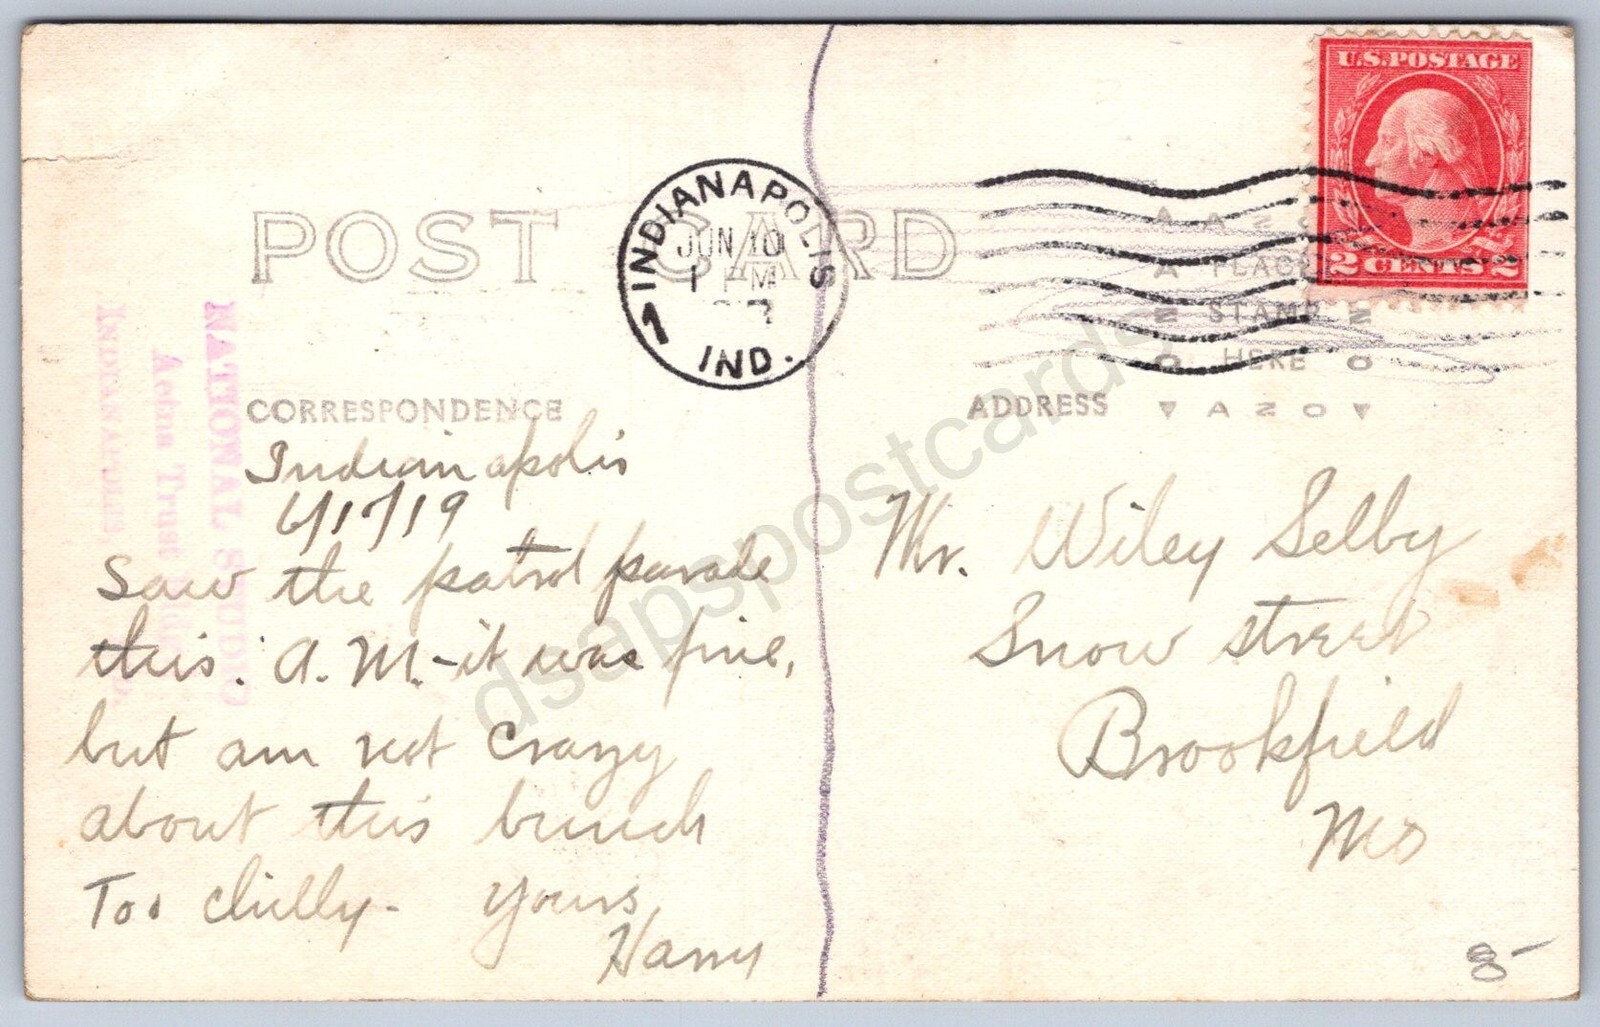 U.S. POSTAGE
2 CENTS 2
INDIANAPOLIS
JUN 10
1 PM
IND.
POST CARD
PLACE
STAMP
HERE
AZO
CORRESPONDENCE
ADDRESS
NATIONAL STUDIO
Aetna Trust
INDIANAPOLIS
Indianapolis
6/17/19
Saw the patrol parade
this. A.M.-it was fine,
but am not crazy
about this bunch
Too chilly- Yours,
Harry
Mr. Wiley Selby
Snow street
Brookfield
Mo
8-
dsapspostcards